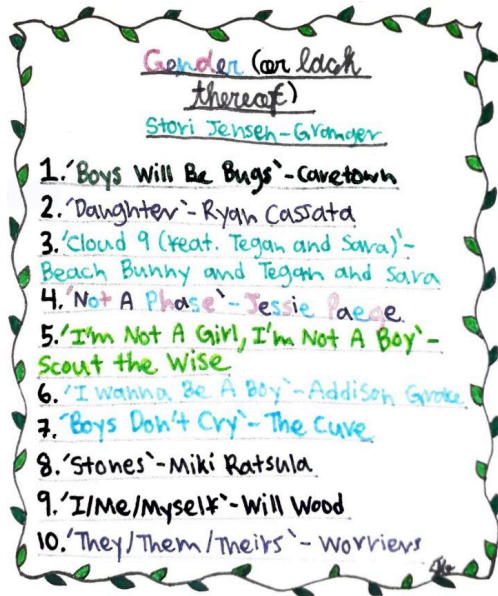 Gender (or lack
thereof)
Stori Jensen-Granger
1. 'Boys Will Be Bugs'-Cavetown
2. 'Daughter'-Ryan Cassata
3. 'Cloud 9 (feat. Tegan and Sara)'-
Beach Bunny and Tegan and Sara
4. 'Not A Phase'-Jessie Paege
5. 'I'm Not A Girl, I'm Not A Boy'-
Scout the Wise
6. 'I wanna Be A Boy'-Addison Grace
7. 'Boys Don't Cry'-The Cure
8. 'Stones'-Miki Ratsula
9. 'I/Me/Myself'-Will Wood
10. 'They/Them/Theirs'-Worriers